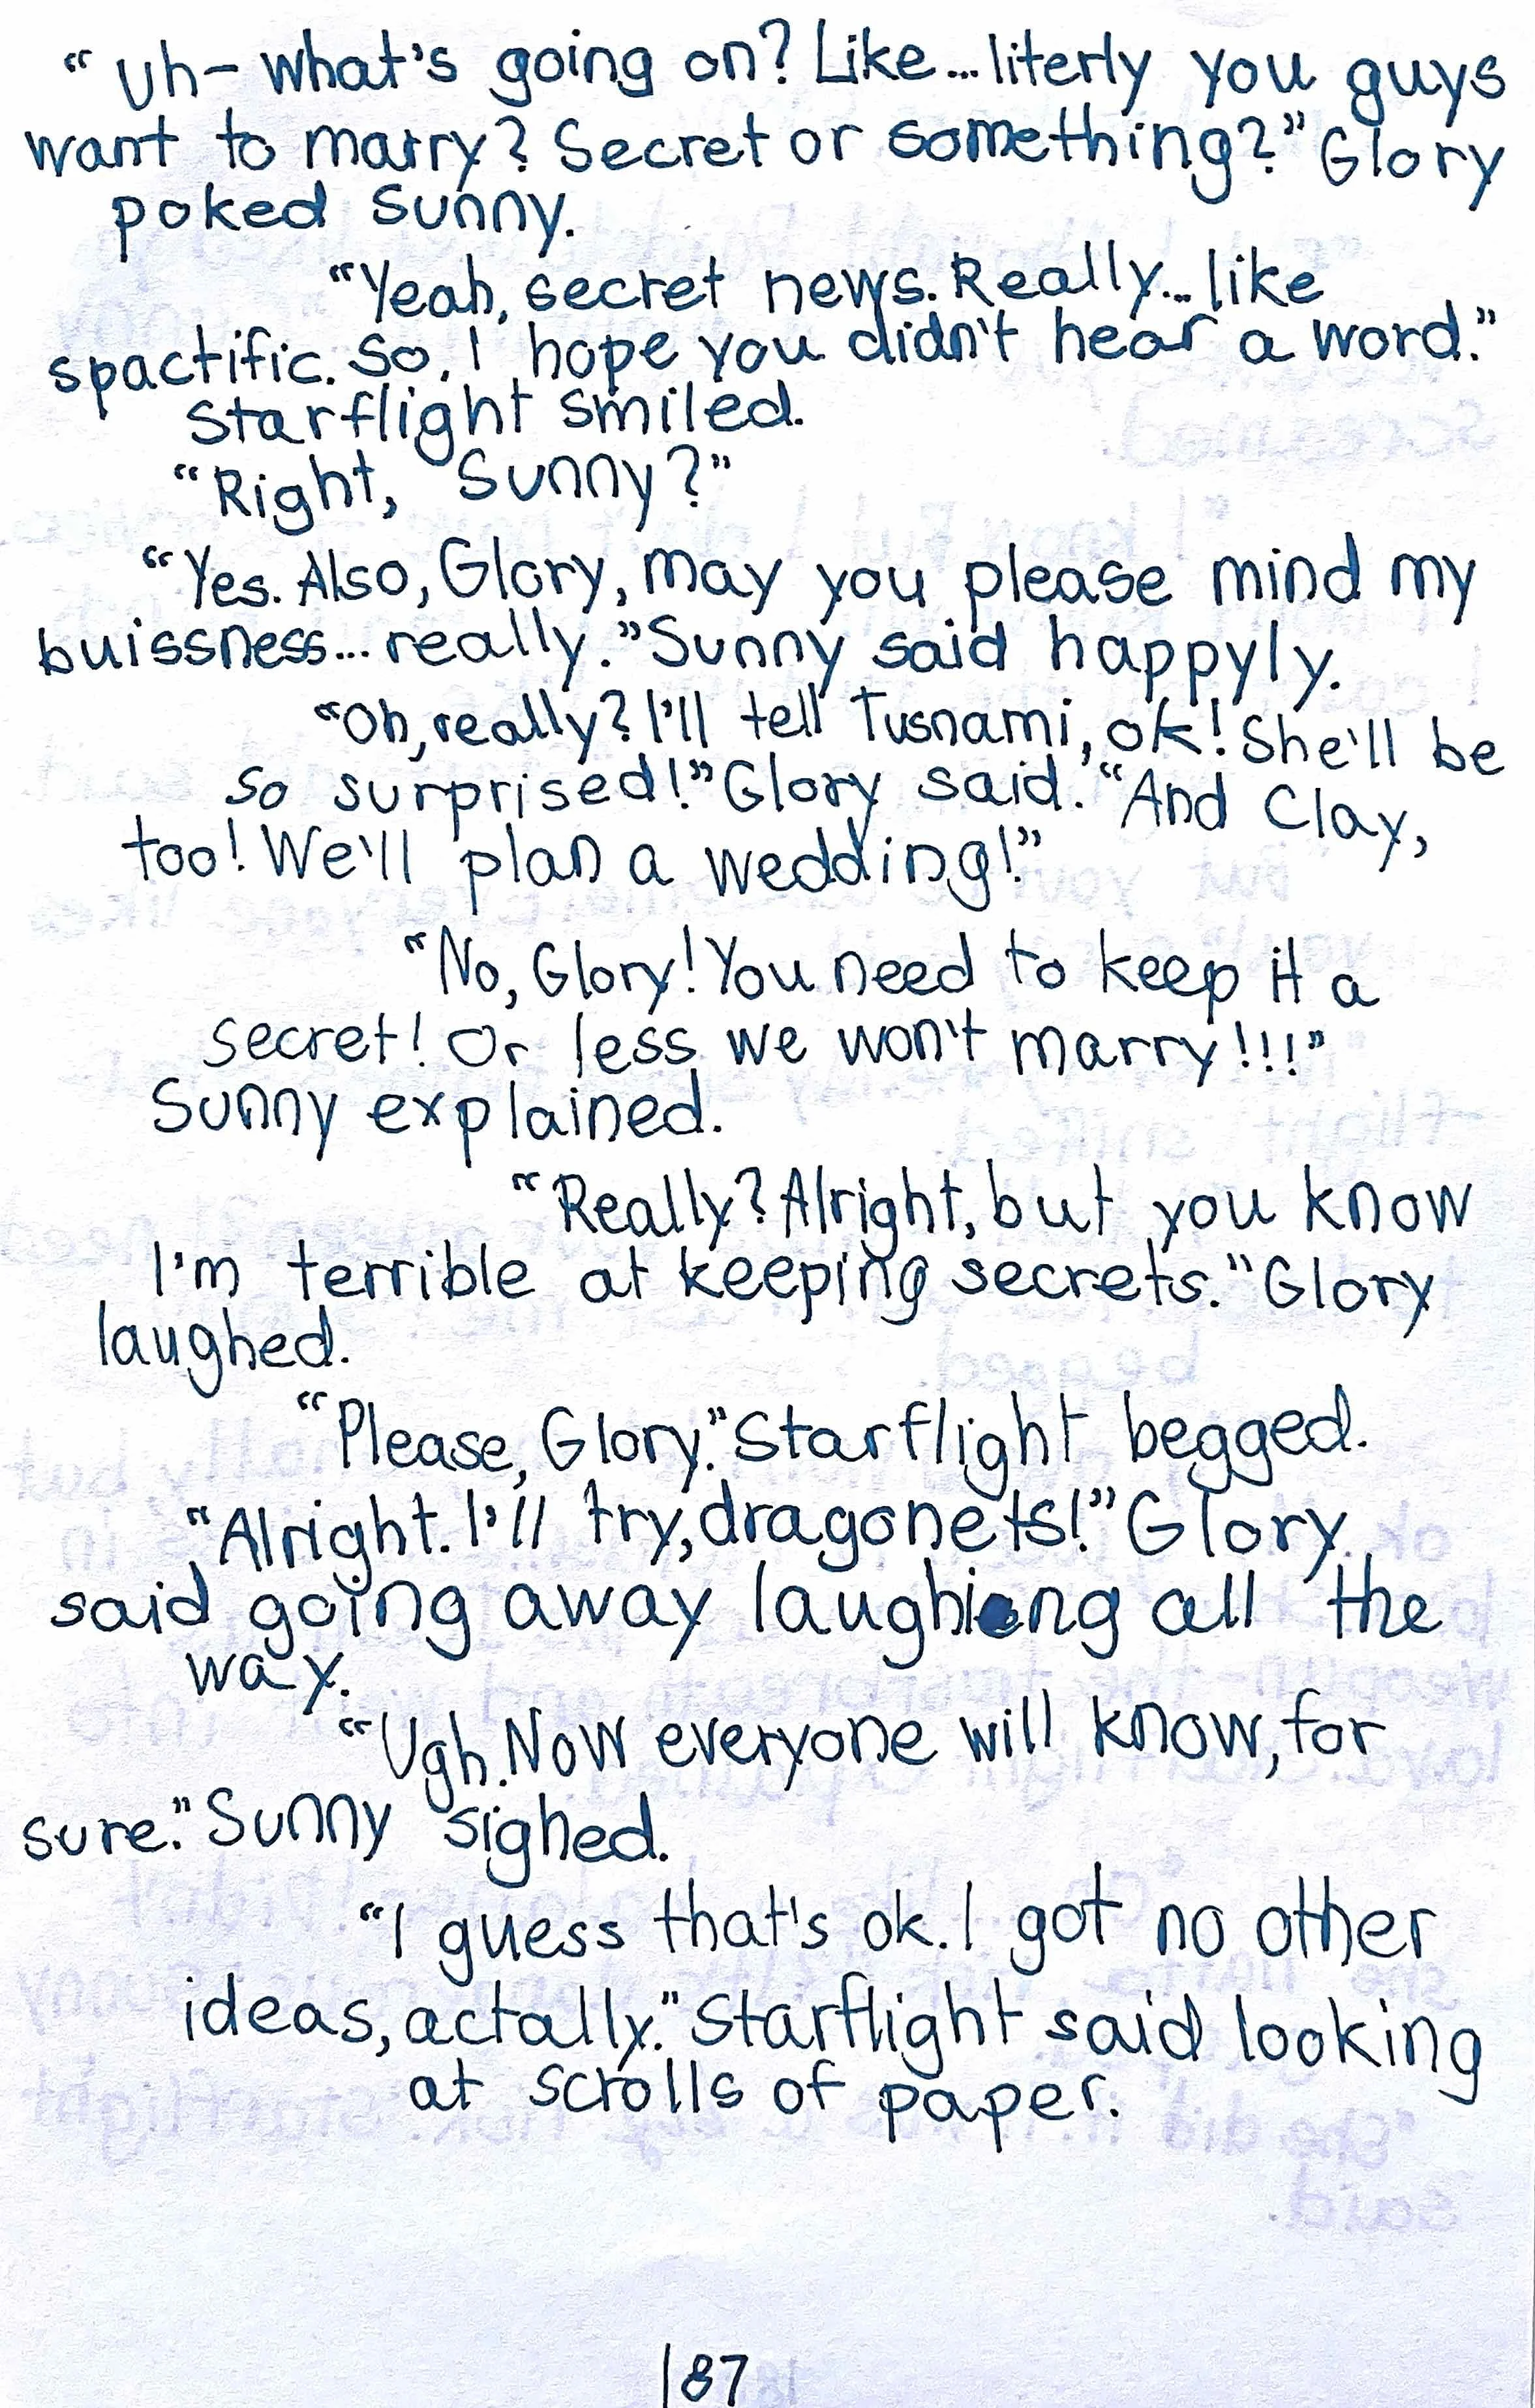 “Uh- what's going on? Like... literly you guys
want to marry? Secret or something?” Glory
poked Sunny.
“Yeah, secret news. Really... like
spactific. So, I hope you didn't hear a word.”
Starflight smiled.
“Right, Sunny?”
“Yes. Also, Glory, may you please mind my
buissness... really.” Sunny said happyly.
“Oh, really? I'll tell Tusnami, ok! She'll be
so surprised!” Glory said. “And Clay,
too! We'll plan a wedding!”
“No, Glory! You need to keep it a
secret! Or less we won't marry!!!”
Sunny explained.
“Really? Alright, but you know
I'm terrible at keeping secrets.” Glory
laughed.
“Please, Glory.” Starflight begged.
“Alright. I'll try, dragonets!” Glory
said going away laughing all the
way.
“Ugh. Now everyone will know, for
sure.” Sunny sighed.
“I guess that's ok. I got no other
ideas, actally.” Starflight said looking
at scrolls of paper.
187